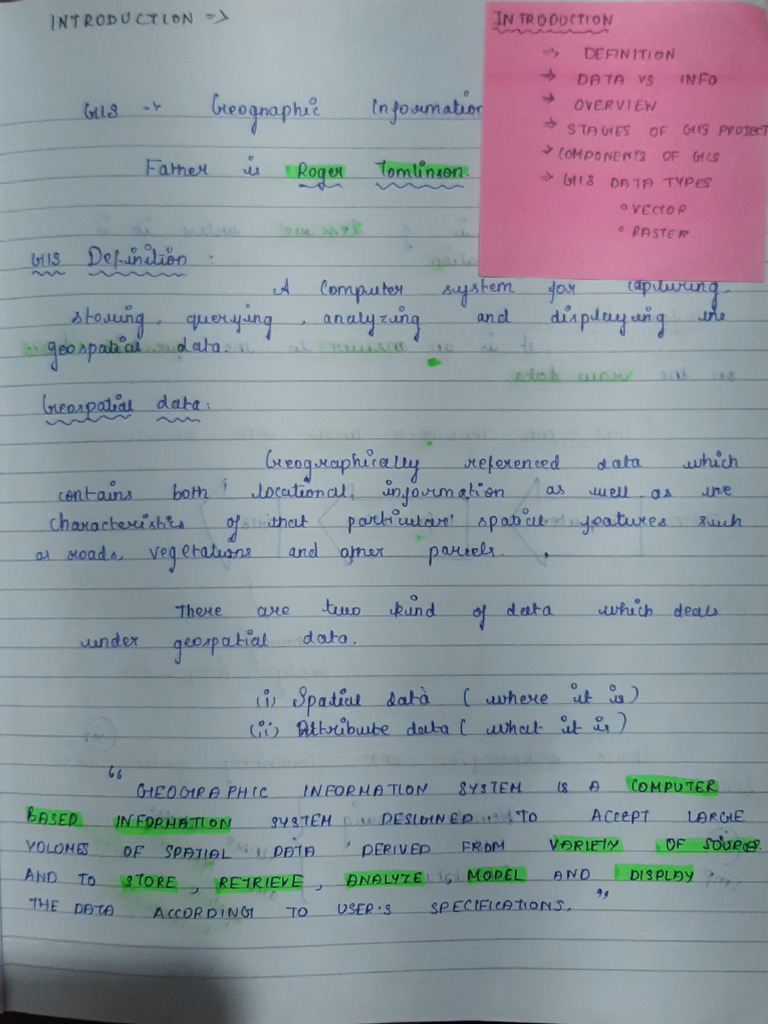 INTRODUCTION =>
GIS → Geographic Information
Father is Roger Tomlinson.
INTRODUCTION
→ DEFINITION
→ DATA VS INFO
→ OVERVIEW
→ STAGES OF GIS PROJECT
→ COMPONENTS OF GIS
→ GIS DATA TYPES
° VECTOR
° RASTER
GIS Definition :
A Computer system for capturing,
storing, querying, analyzing and displaying the
geospatial data.
Geospatial data:
Geographically referenced data which
contains both locational information as well as the
characteristics of that particular spatial features such
as roads, vegetations and other parcels.
There are two kind of data which deals
under geospatial data.
(i) Spatial data (where it is)
(ii) Attribute data (what it is)
“ GEOGRAPHIC INFORMATION SYSTEM IS A COMPUTER
BASED INFORMATION SYSTEM DESIGNED TO ACCEPT LARGE
VOLUMES OF SPATIAL DATA DERIVED FROM VARIETY OF SOURCES
AND TO STORE, RETRIEVE, ANALYZE, MODEL AND DISPLAY
THE DATA ACCORDING TO USER'S SPECIFICATIONS. ”